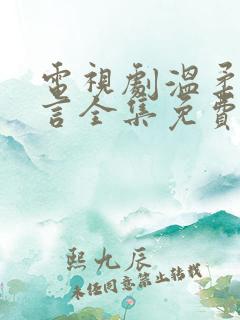 電視劇溫柔
言全集免費
熙九辰
未經同意禁止轉載